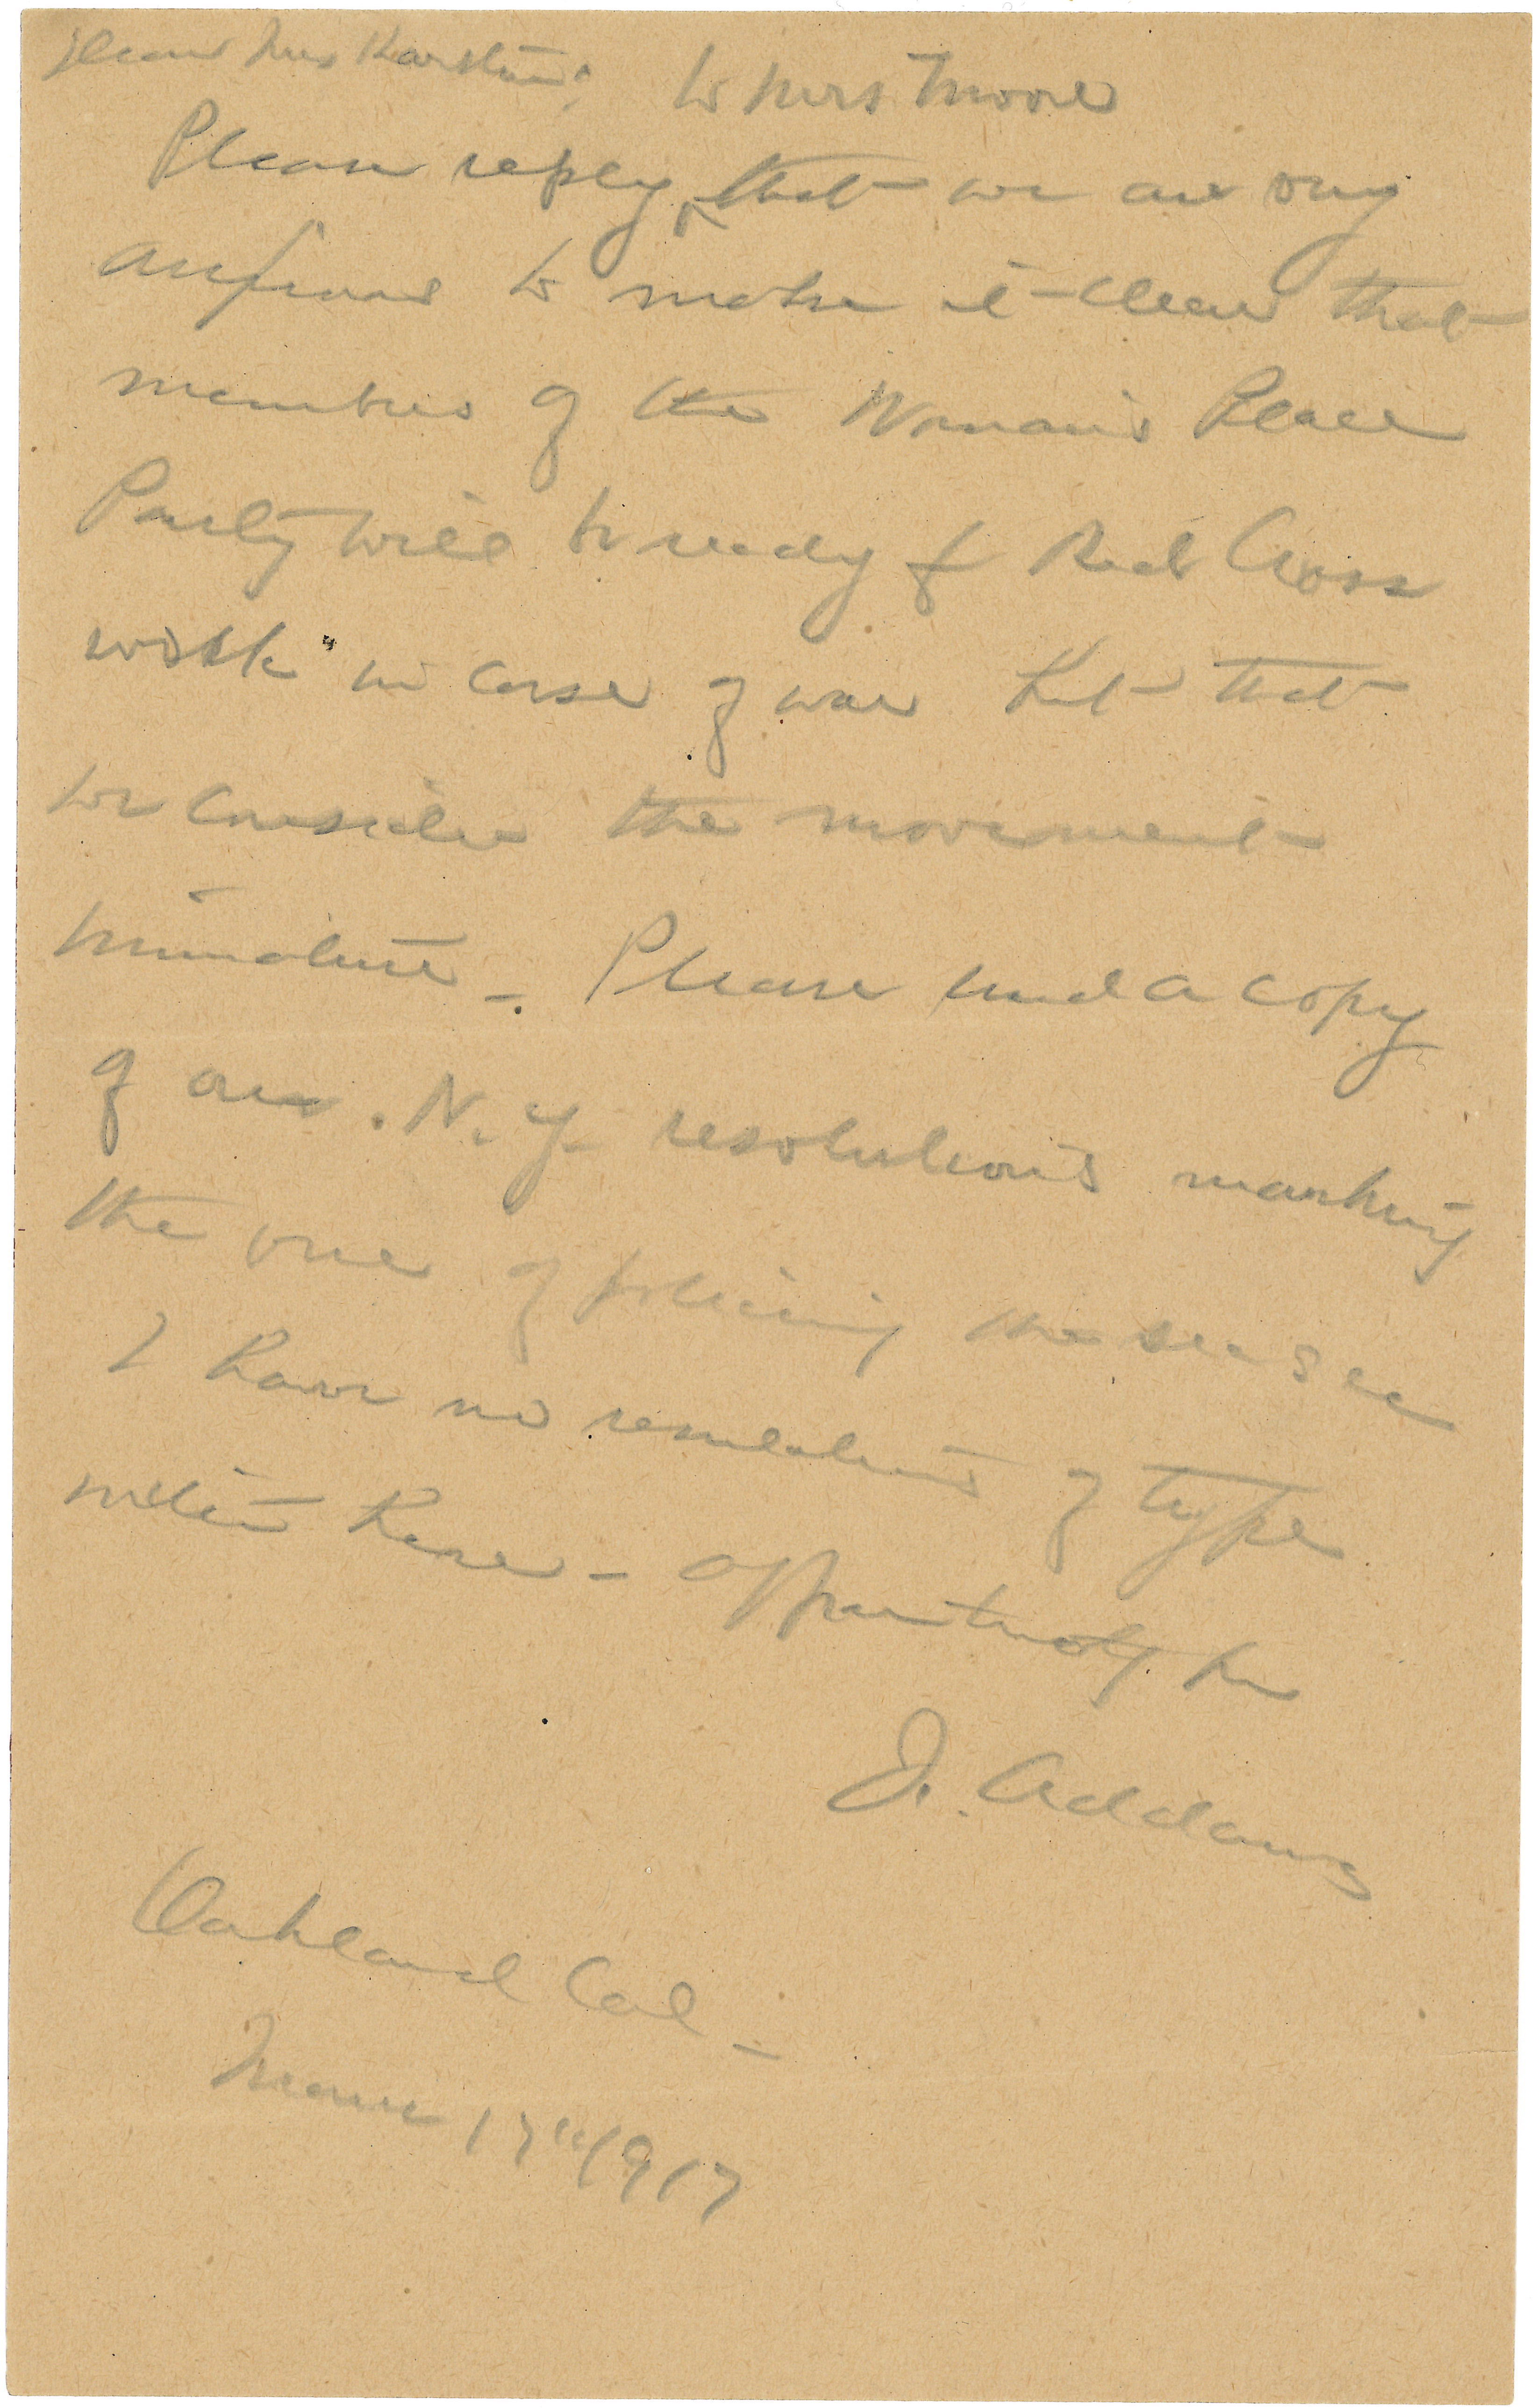 Dear Mrs Karsten:
to Mrs Moore
Please reply ‸ that we are very
anxious to make it clear that
members of the Woman's Peace
Party will be ready f Red Cross
work in case of war but that
we consider the movement
immature. Please send a copy
of our N. Y. resolutions marking
the one of policing the sea
I have no of type
here - opportunity
J. Addams
Oakland Cal -
March 17" 1917